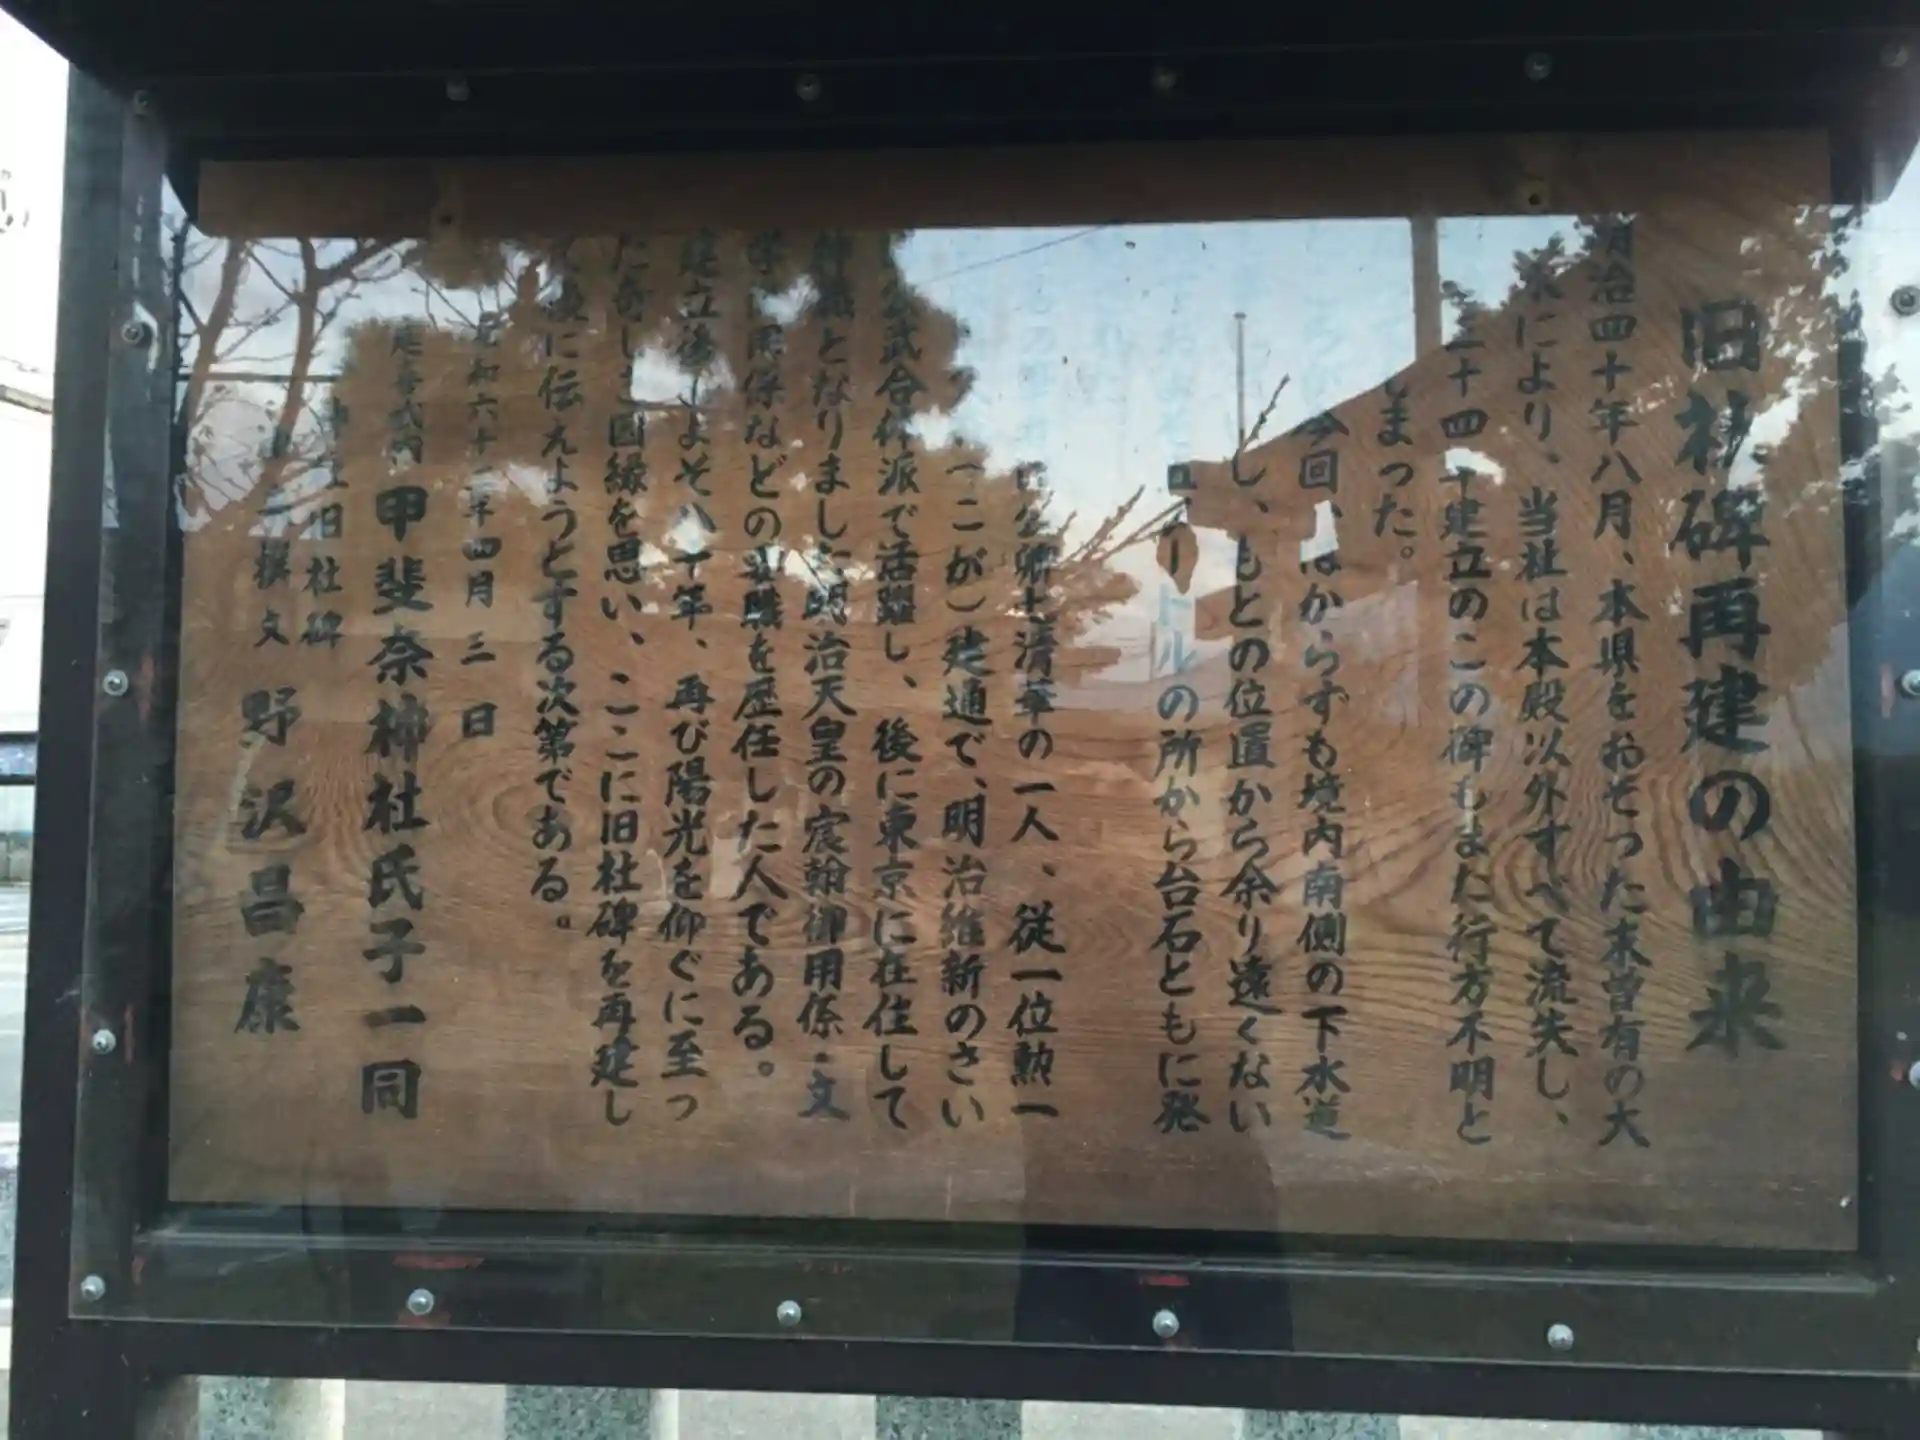 旧社碑再建の由来
明治四十年八月、本県をおそった未曽有の大
水により、当社は本殿以外すべて流失し、
三十四年建立のこの碑もまた行方不明と
しまった。
今回、はからずも境内南側の下水道
し、もとの位置から余り遠くない
ートルの所から台石ともに発
公卿七清華の一人、従一位勲一
(こが)建通で、明治維新のさい
公武合体派で活躍し、後に東京に在住して
となりました明治天皇の宸翰御用係・文
などの要職を歴任した人である。
建立後およそ八十年、再び陽光を仰ぐに至っ
た奇しき因縁を思い、ここに旧社碑を再建し
に伝えようとする次第である。
昭和六十二年四月三日
甲斐奈神社氏子一同
旧社碑
撰文 野沢昌康